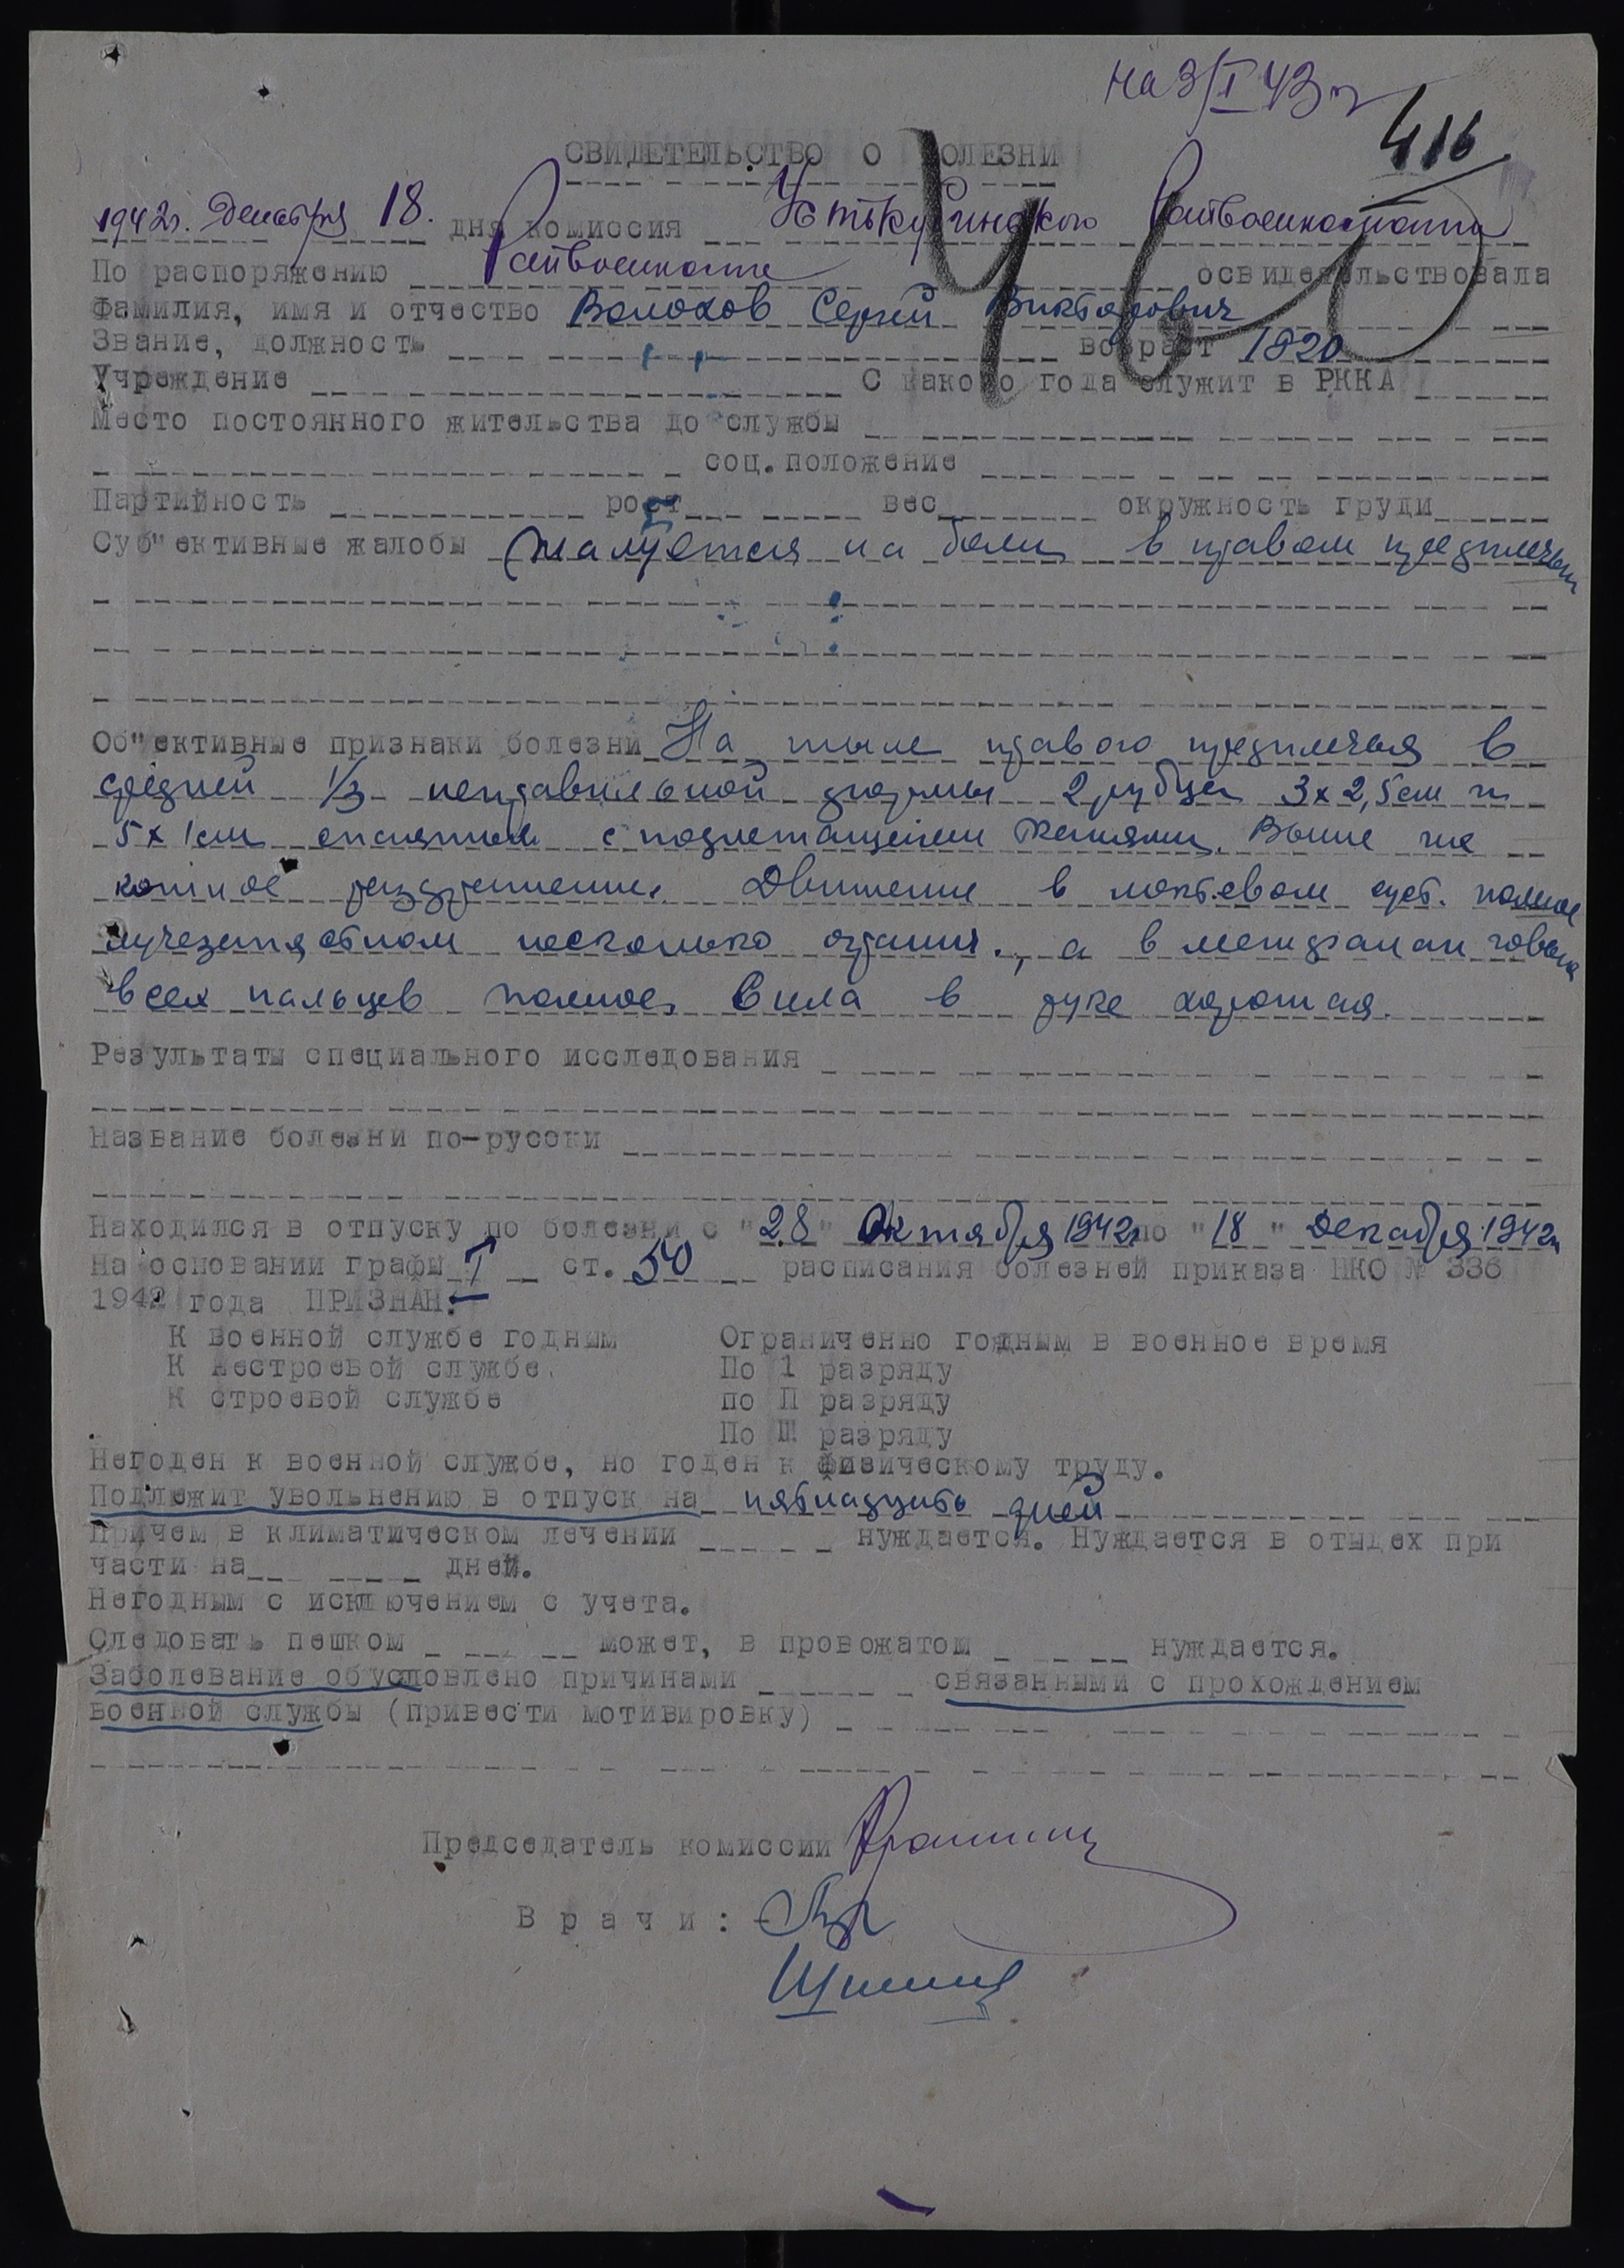 на 3/I 43 г
416
СВИДЕТЕЛЬСТВО О БОЛЕЗНИ
1942г. Декабря 18. дня комиссия Устькубинского Райвоенкомата
По распоряжению Райвоенкома освидетельствовала
Фамилия, имя и отчество Волохов Сергей Викторович
Звание, должность возраст 1920
Учреждение С какого года служит в РККА
Место постоянного жительства до службы
соц. положение
Партийность рост вес окружность груди
Суб"ективные жалобы Жалуется на боли в правом предплечьи
Об"ективные признаки болезни На тыле правого предплечья в
средней 1/3 неправильной формы 2 рубца 3х2,5см и
5х1см спаяные с подлежащеми тканями. Выше же
кожное раздражение. Движение в локтевом суст. полное
лучезапястном несколько огранич., а в межфаланговых
всех пальцев полное, Сила в руке хорошая.
Результаты специального исследования
Название болезни по-русски
Находился в отпуску по болезни с "28" Октября 1942г по "18" Декабря 1942г
На основании графы I ст. 50 расписания болезней приказа НКО № 336
1942 года ПРИЗНАН:
К военной службе годным Ограниченно годным в военное время
К нестроевой службе. По 1 разряду
К строевой службе по П разряду
По Ш разряду
Негоден к военной службе, но годен к физическому труду.
Подлежит увольнению в отпуск на пятнадцать дней
Причем в климатическом лечении нуждается. Нуждается в отыдех при
части на дней.
Негодным с исключением с учета.
Следовать пешком может, в провожатом нуждается.
Заболевание обусловлено причинами связанными с прохождением
военной службы (привести мотивировку)
Председатель комиссии
Врачи: